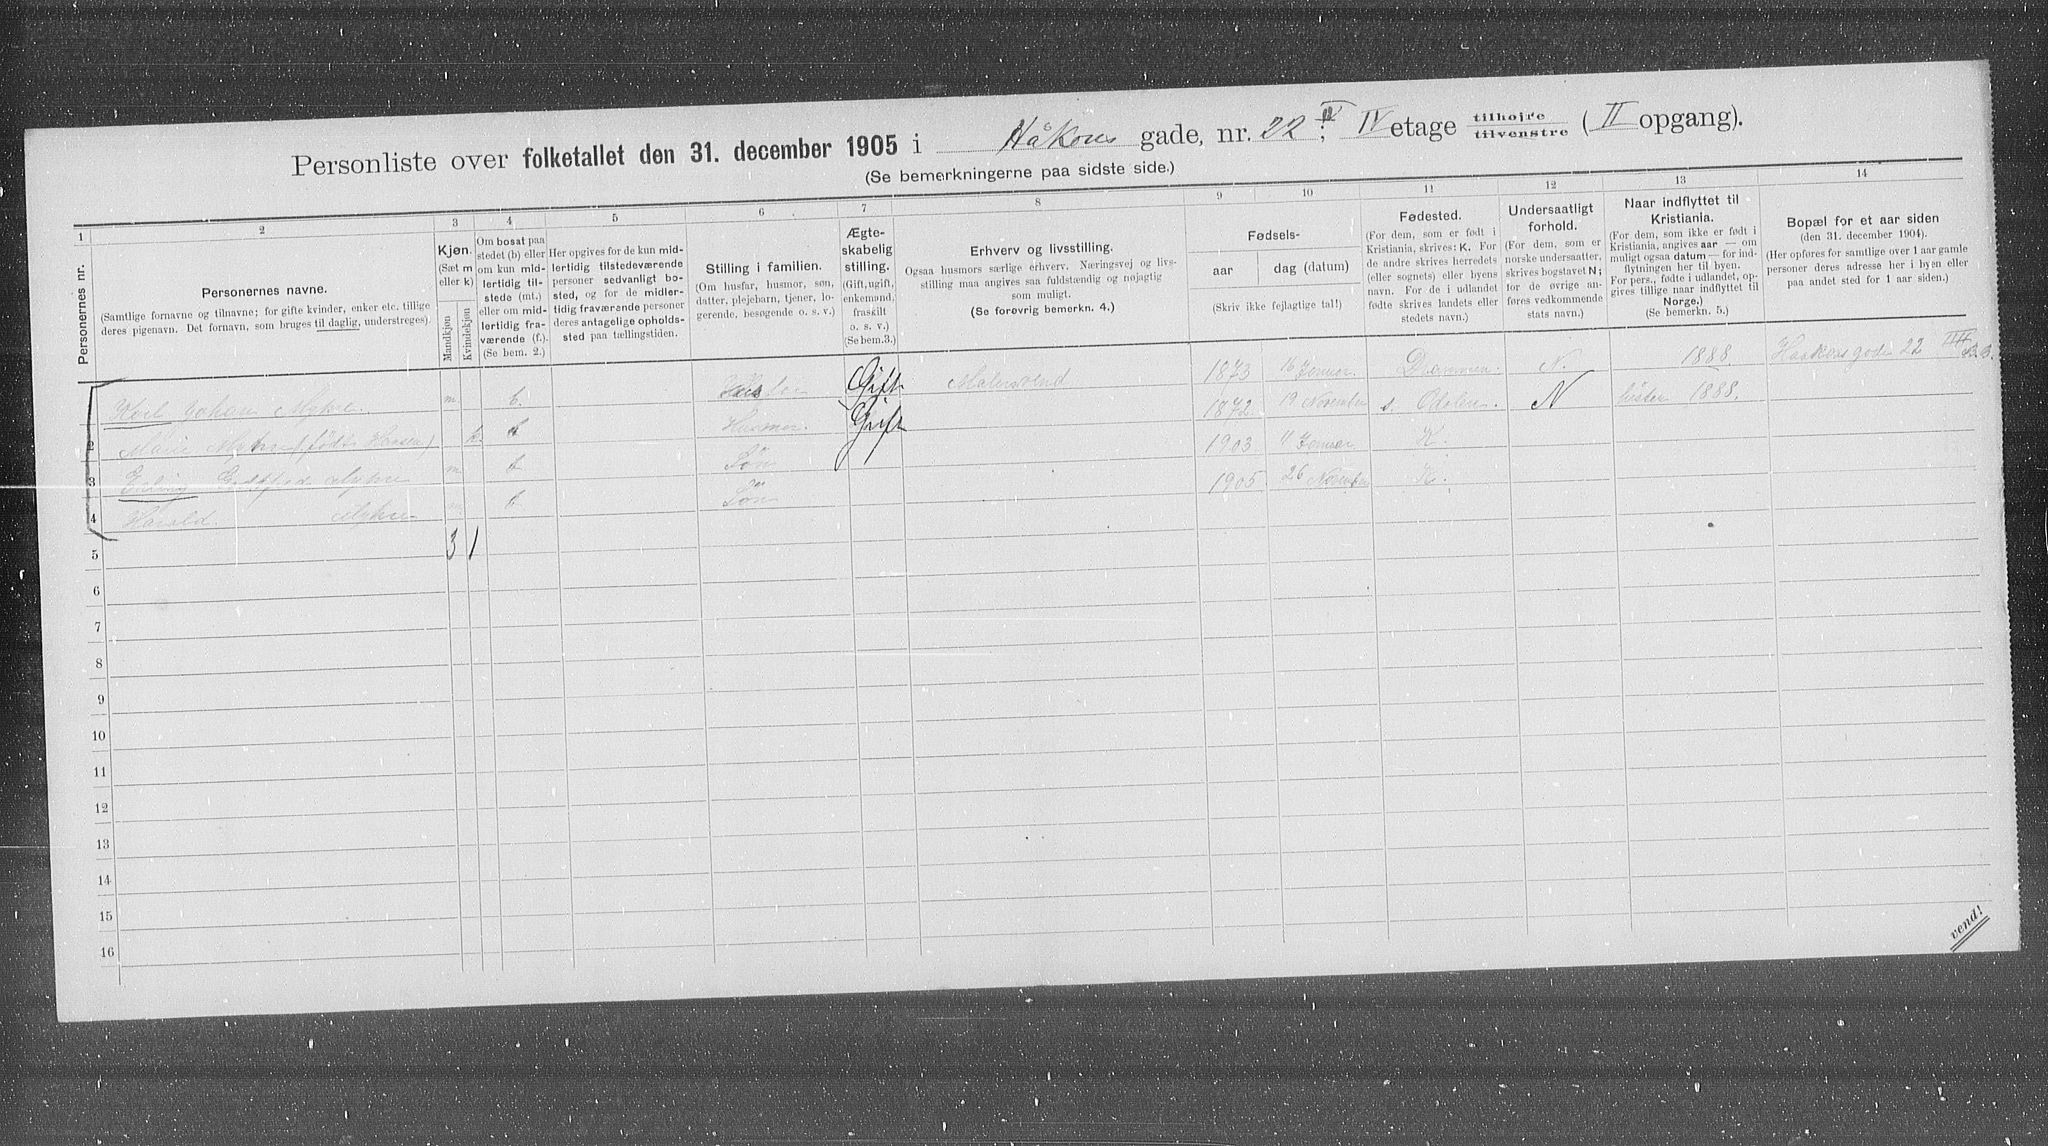 Personliste over folketallet den 31. december 1905 i Håkons gade, nr. 22 II IV etage tilhøjre / tilvenstre (II opgang).
(Se bemerkningerne paa sidste side.)
1 2 3 4 5 6 7 8 9 10 11 12 13 14
Personernes nr.
Personernes navne.
(Samtlige fornavne og tilnavne; for gifte kvinder, enker etc. tillige
deres pigenavn. Det fornavn, som bruges til daglig, understreges).
Kjøn.
(Sæt m
eller k)
Mandkjøn
Kvindekjøn
Om bosat paa
stedet (b) eller
om kun mid-
lertidig til-
stede (mt.)
eller om mid-
lertidig fra-
værende (f.).
(Se bem. 2.)
Her opgives for de kun mid-
lertidig tilstedeværende
personer sedvanligt bo-
sted, og for de midler-
tidig fraværende personer
deres antagelige opholds-
sted paa tællingstiden.
Stilling i familien.
(Om husfar, husmor, søn,
datter, plejebarn, tjener, lo-
gerende, besøgende o. s. v.)
Ægte-
skabelig
stilling.
(Gift, ugift,
enkemand,
fraskilt
o. s. v.)
(Se bem. 3.)
Erhverv og livsstilling.
Ogsaa husmors særlige erhverv. Næringsvej og livs-
stilling maa angives saa fuldstændig og nøjagtig
som muligt.
(Se forøvrig bemerkn. 4.)
Fødsels-
aar dag (datum)
(Skriv ikke fejlagtige tal!)
Fødested.
(For dem, som er født i
Kristiania, skrives: K. For
de andre skrives herredets
(eller sognets) eller byens
navn. For de i udlandet
fødte skrives landets eller
stedets navn.)
Undersaatligt
forhold.
(For dem, som er
norske undersaatter,
skrives bogstavet N;
for de øvrige an-
føres vedkommende
stats navn.)
Naar indflyttet til
Kristiania.
(For dem, som ikke er født i
Kristiania, angives aar — om
muligt ogsaa datum — for ind-
flytningen her til byen.
For pers., fødte i udlandet, op-
gives tillige naar indflyttet til
Norge.)
(Se bemerkn. 5.)
Bopæl for et aar siden
(den 31. december 1904).
(Her opføres for samtlige over 1 aar gamle
personer deres adresse her i byen eller
paa andet sted for 1 aar siden.)
Karl Johan Myhre m. b. Gift Malersvend 1873 16 Januar. Drammen. N. 1888. Haakonsgade 22 III
2 Marie Myhre (født Hansen) k. b Husmor. Gift 1872. 19 November s. Odalen. N høsten 1888.
3 Erling Myhre m b Søn 1903 11 Januar K.
4 Harald Myhre m b Søn 1905 26 November K.
5 3 1
6
7
8
9
10
11
12
13
14
15
16
vend!